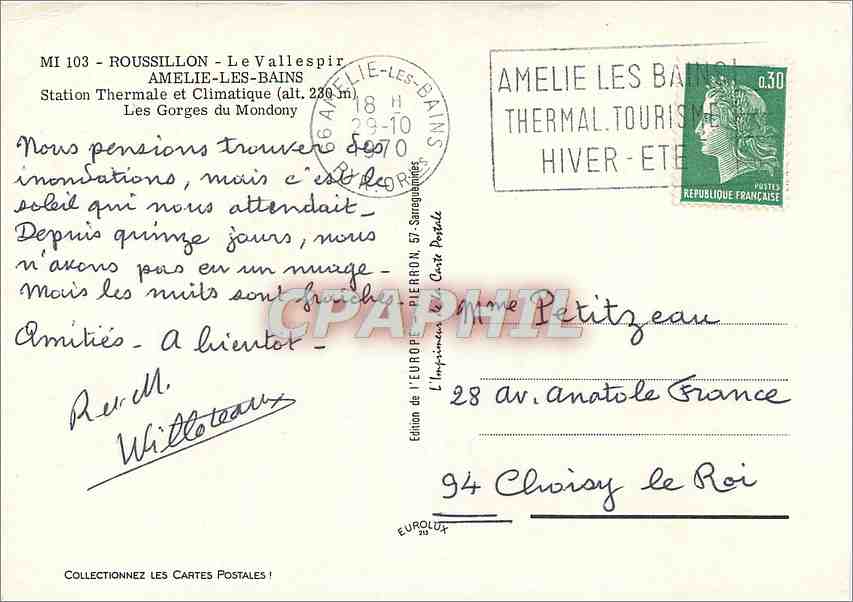 MI 103 - ROUSSILLON - Le Vallespir
AMELIE-LES-BAINS
Station Thermale et Climatique (alt. 230 m)
Les Gorges du Mondony
66 AMELIE-LES-BAINS
18 H
29-10
1970
PYR. ORles
AMELIE LES BAINS
THERMAL.TOURISME
HIVER - ETE
0,30
POSTES
REPUBLIQUE FRANÇAISE
Nous pensions trouver des
inondations, mais c'est le
soleil qui nous attendait -
Depuis quinze jours, nous
n'avons pas eu un nuage -
Mais les nuits sont fraîches -
Amitiés - A bientot -
R et M.
Willoteaux
Edition de l'EUROPE - PIERRON, 57-Sarreguemines
L'Imprimeur de la Carte Postale
CPAPHIL
Mme Petitzeau
28 av. Anatole France
94 Choisy le Roi
EUROLUX
213
COLLECTIONNEZ LES CARTES POSTALES !